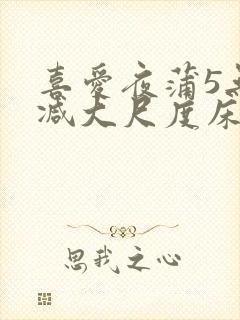 喜愛夜蒲5无
减大尺度床
思我之心